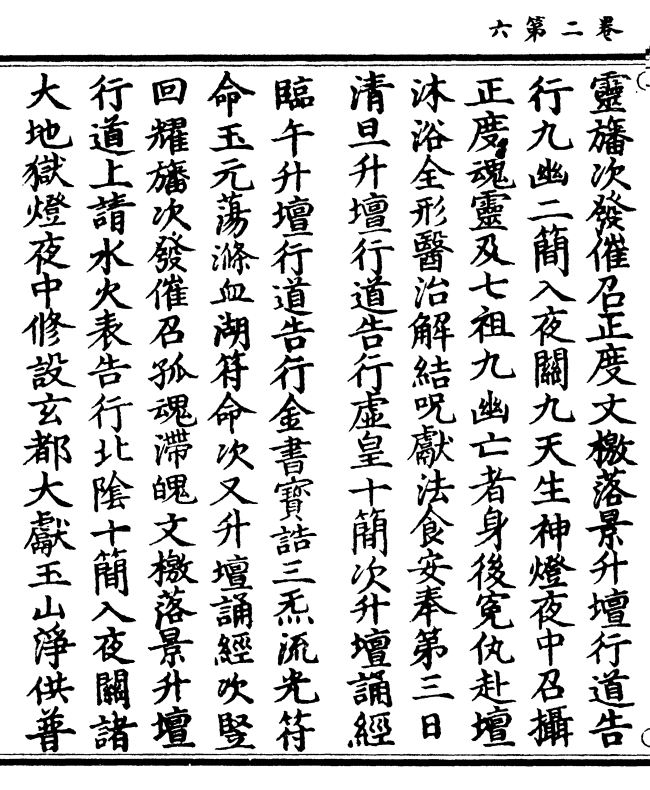 卷二第六
靈旛次發催召正度文檄落景升壇行道告
行九幽二簡入夜關九天生神燈夜中召攝
正度魂靈及七祖九幽亡者身後冤仇赴壇
沐浴全形醫治解結呪獻法食安奉第三日
清旦升壇行道告行虛皇十簡次升壇誦經
臨午升壇行道告行金書寶誥三炁流光符
命玉元蕩滌血湖符命次又升壇誦經次竪
回耀旛次發催召孤魂滯魄文檄落景升壇
行道上請水火表告行北陰十簡入夜關諸
大地獄燈夜中修設玄都大獻玉山淨供普